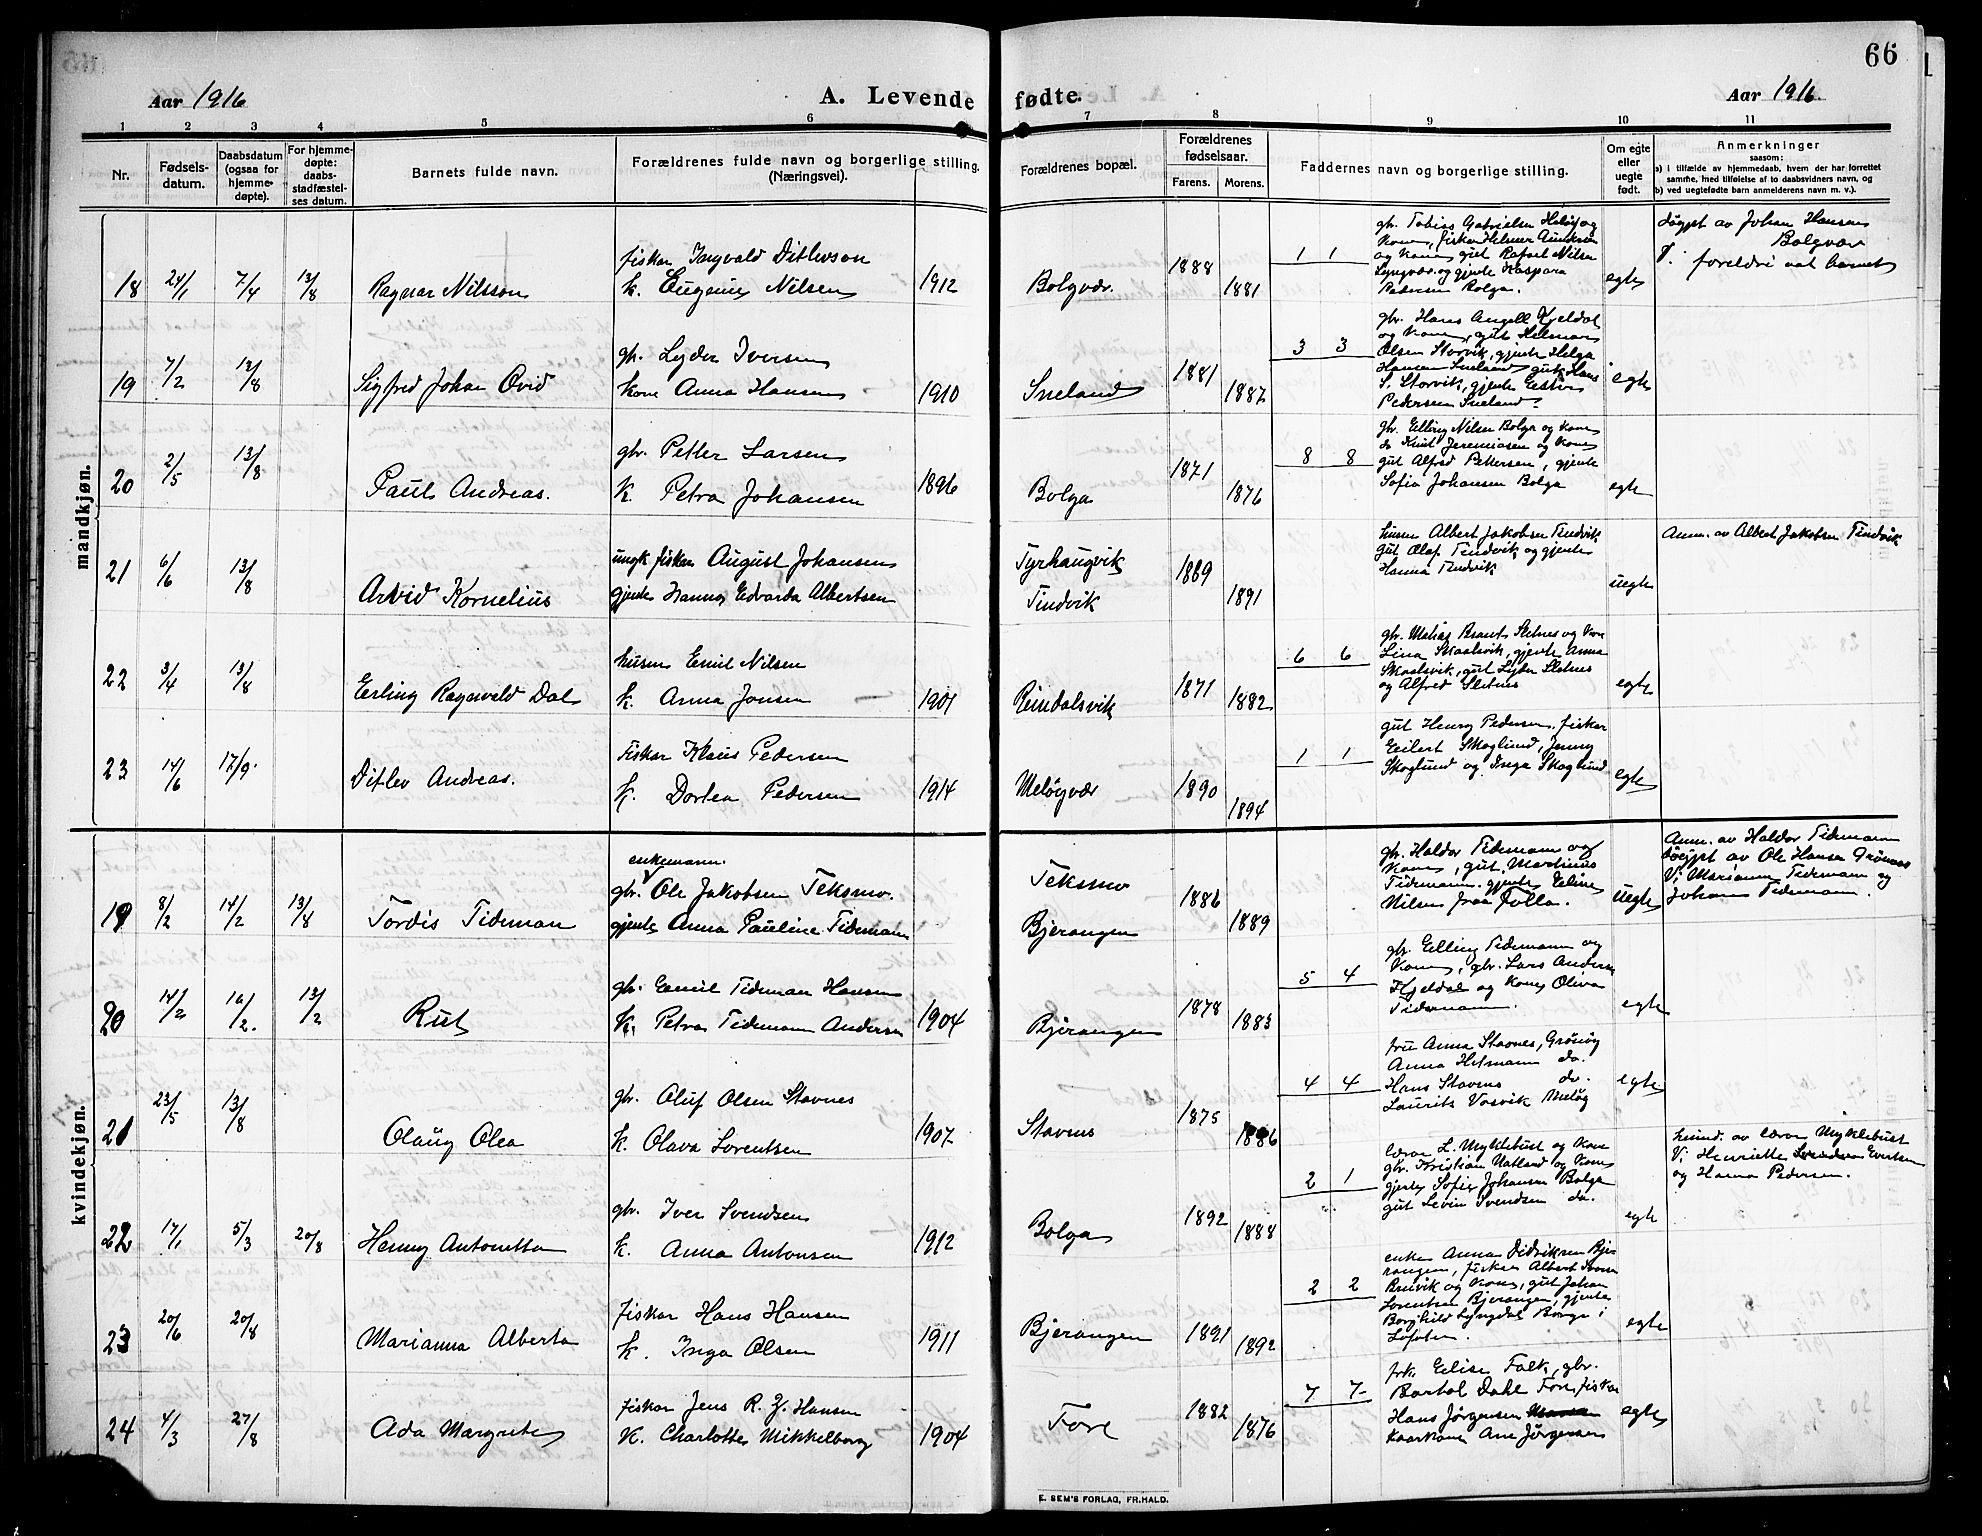 66
Aar 1916 A. Levende fødte. Aar 1916.
1 2 3 4 5 6 7 8 9 10 11
Nr. Fødselsdatum. Daabsdatum (ogsaa for hjemmedøpte). For hjemmedøpte: daabsstadfæstelses datum. Barnets fulde navn. Forældrenes fulde navn og borgerlige stilling. (Næringsvei). Forældrenes bopæl. Forældrenes fødselsaar. Farens. Morens. Faddernes navn og borgerlige stilling. Om egte eller uegte født. Anmerkninger saasom: a) i tilfælde av hjemmedaab, hvem der har forrettet samme, med tilføielse af to daabsvidners navn, og b) ved uegtefødte barn anmelderens navn m. v.).
mandkjøn.
18 24/1 7/4 13/8 Ragnar Nilsson
fiskar Ingvald Ditlevson
k. Eugenie Nilsen 1912
Bolgvær. 1888 1881
1 1
gbr. Tobias Gabrielsen Meløy og
Kone, fiskar Helmer
og Kone gut Rafael Nilsen
Lyngvær og gjente Kaspara
Pedersen Bolga.
egte
døypt av Johan Hansen
Bolgvær
V. foreldri aat barnet
19 7/2 13/8 Sigfred Johan Ovid
gbr. Lyder Iversen
kone Anna Hansen 1910
Sneland 1881 1887
3 3
gbr. Hans Angell Kjeldal
og kone, gut Helmer
Olsen Storvik, gjente Helga
Hansen Sneland gut Hans
S. Storvik, gjente
Pedersen Sneland
egte
20 2/5 13/8 Paul Andreas.
gbr. Petter Larsen
k. Petra Johansen 1896
Bolga 1871 1876
8 8
gbr. Elling Nilsen Bolga og kone
do Knut Jeremiasen og kone
gut Alfred Pettersen, gjente
Sofia Johansen Bolga
egte
21 6/6 13/8 Arvid Kornelius
ungk. fiskar August Johansen
gjente Hanna Edvarda Albertsen
Tyrhaugvik
Tindvik
1889 1891
husm Albert Jakobsen Tindvik
gut Olaf Tindvik og gjente
Hanna Tindvik
uegte
Anm. av Albert Jakobsen Tindvik
22 3/4 13/8 Erling Ragnvald Dal
husm Emil Nilsen
k. Anna Jonsen 1901
Reindalsvik 1871 1882
6 6
gbr. Matias Brant Sletnes og kone
Lina Skaalsvik, gjente Anna
Skaalsvik, gut Lyder Sletnes
og Alfred Sletnes
egte
23 14/6 17/9. Ditlev Andreas.
Fiskar Klaus Pedersen
k. Dortea Pedersen 1914
Meløyvær 1890 1894
1 1
gut Henry Pedersen, fiskar
Eilert Skoglund, Jenny
Skoglund og Inga Skoglund
egte
kvindekjøn.
19 8/2 14/2 13/8 Tordis Tideman
enkemann.
gbr. Ole Jakobsen Teksmo.
gjente Anna Pauline Tidemann
Teksmo
Bjerangen
1886 1889
gbr. Haldor Tidemann og
Kone, gut Martinus
Tidemann. gjente Eline
Nilsen fraa Folla.
Uegte
Anm. av Haldor Tidemann
døypt av Ole Hansen Grønnes
V: Mariann Tidemann og
Johan Tidemann.
20 14/2 12/2. 13/2 Rut
gbr. Emil Tideman Hansen
K. Petra Tidemann Andersen 1904
Bjerangen 1878 1883
5 4
gbr. Elling Tidemann og
Kone, gbr. Lars Andersen
Kjeldal og kone Oliva
Tidemann.
egte
21 23/5 13/8 Olaug Olea
gbr. Oluf Olsen Stavnes
k. Olava Lorentsen 1907
Stavnes 1875 1886
4 4
fru Anna Stavnes, Grønøy
Anna Heitmann do.
Hans Stavnes do.
Laurits Vasvik Meløy
egte
22 17/1 5/3 20/8 Henny Antonette
gbr. Iver Svendsen
k. Anna Antonsen 1912
Bolga 1892 1888
2 1
lærar L. Myklebust og kone
gbr. Kristian Natland og kone
gjente Sofie Johansen Bolga
gut Levin Svendsen do.
egte
heimd. av lærar Myklebust
V: Henriette Evertsen
og Hanna Pedersen.
23 20/6 20/8 Marianna Alberta
fiskar Hans Hansen
k. Inga Olsen 1911
Bjerangen 1891 1892
2 2
enke Anna Didriksen Bjerangen,
fiskar Albert Iversen
og kone, gut Johan
Lorentsen Bjerangen, gjente
Borghild Lyngdal Borge i
Lofoten.
egte
24 4/3 27/8 Ada Margrete
fiskar Jens R. Z. Hansen
K. Charlotte Mikkelborg 1904
Fore 1882 1876
7 7
frk. Elise Falk, gbr.
Bartol Dahl Fore, fiskar
Hans Jørgensen
Kaarkone Ane Jørgensen
egte
E. SEM'S FORLAG, FR.HALD.